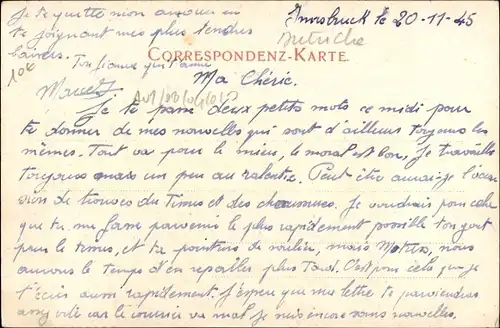 Je te quitte mon amour en
te joignant mes plus tendres
baisers.
Ton fiancé qui t'aime
Marcel
10€
Innsbruck le 20-11-45
Autriche
CORRESPONDENZ-KARTE.
Ma Chérie.
Je te passe deux petits mots ce midi pour
te donner de mes nouvelles qui sont d'ailleurs toujours les
mêmes. Tout va pour le mieux, le moral est bon, je travaille
toujours mais un peu au ralentie. Peut être aurai-je l'occa
sion de trouver du tissus et des chaussures. Je voudrais pour cela
que tu me fasse parvenir le plus rapidement possible ton gout
pour le tissus, et ta pointure de soulier, mais nous
aurons le temps d'en reparler plus tard. C'est pour cela que je
t'écris aussi rapidement. J'espère que ma lettre te parviendras
assez vite car le courrier va mal je suis encore sans nouvelles.